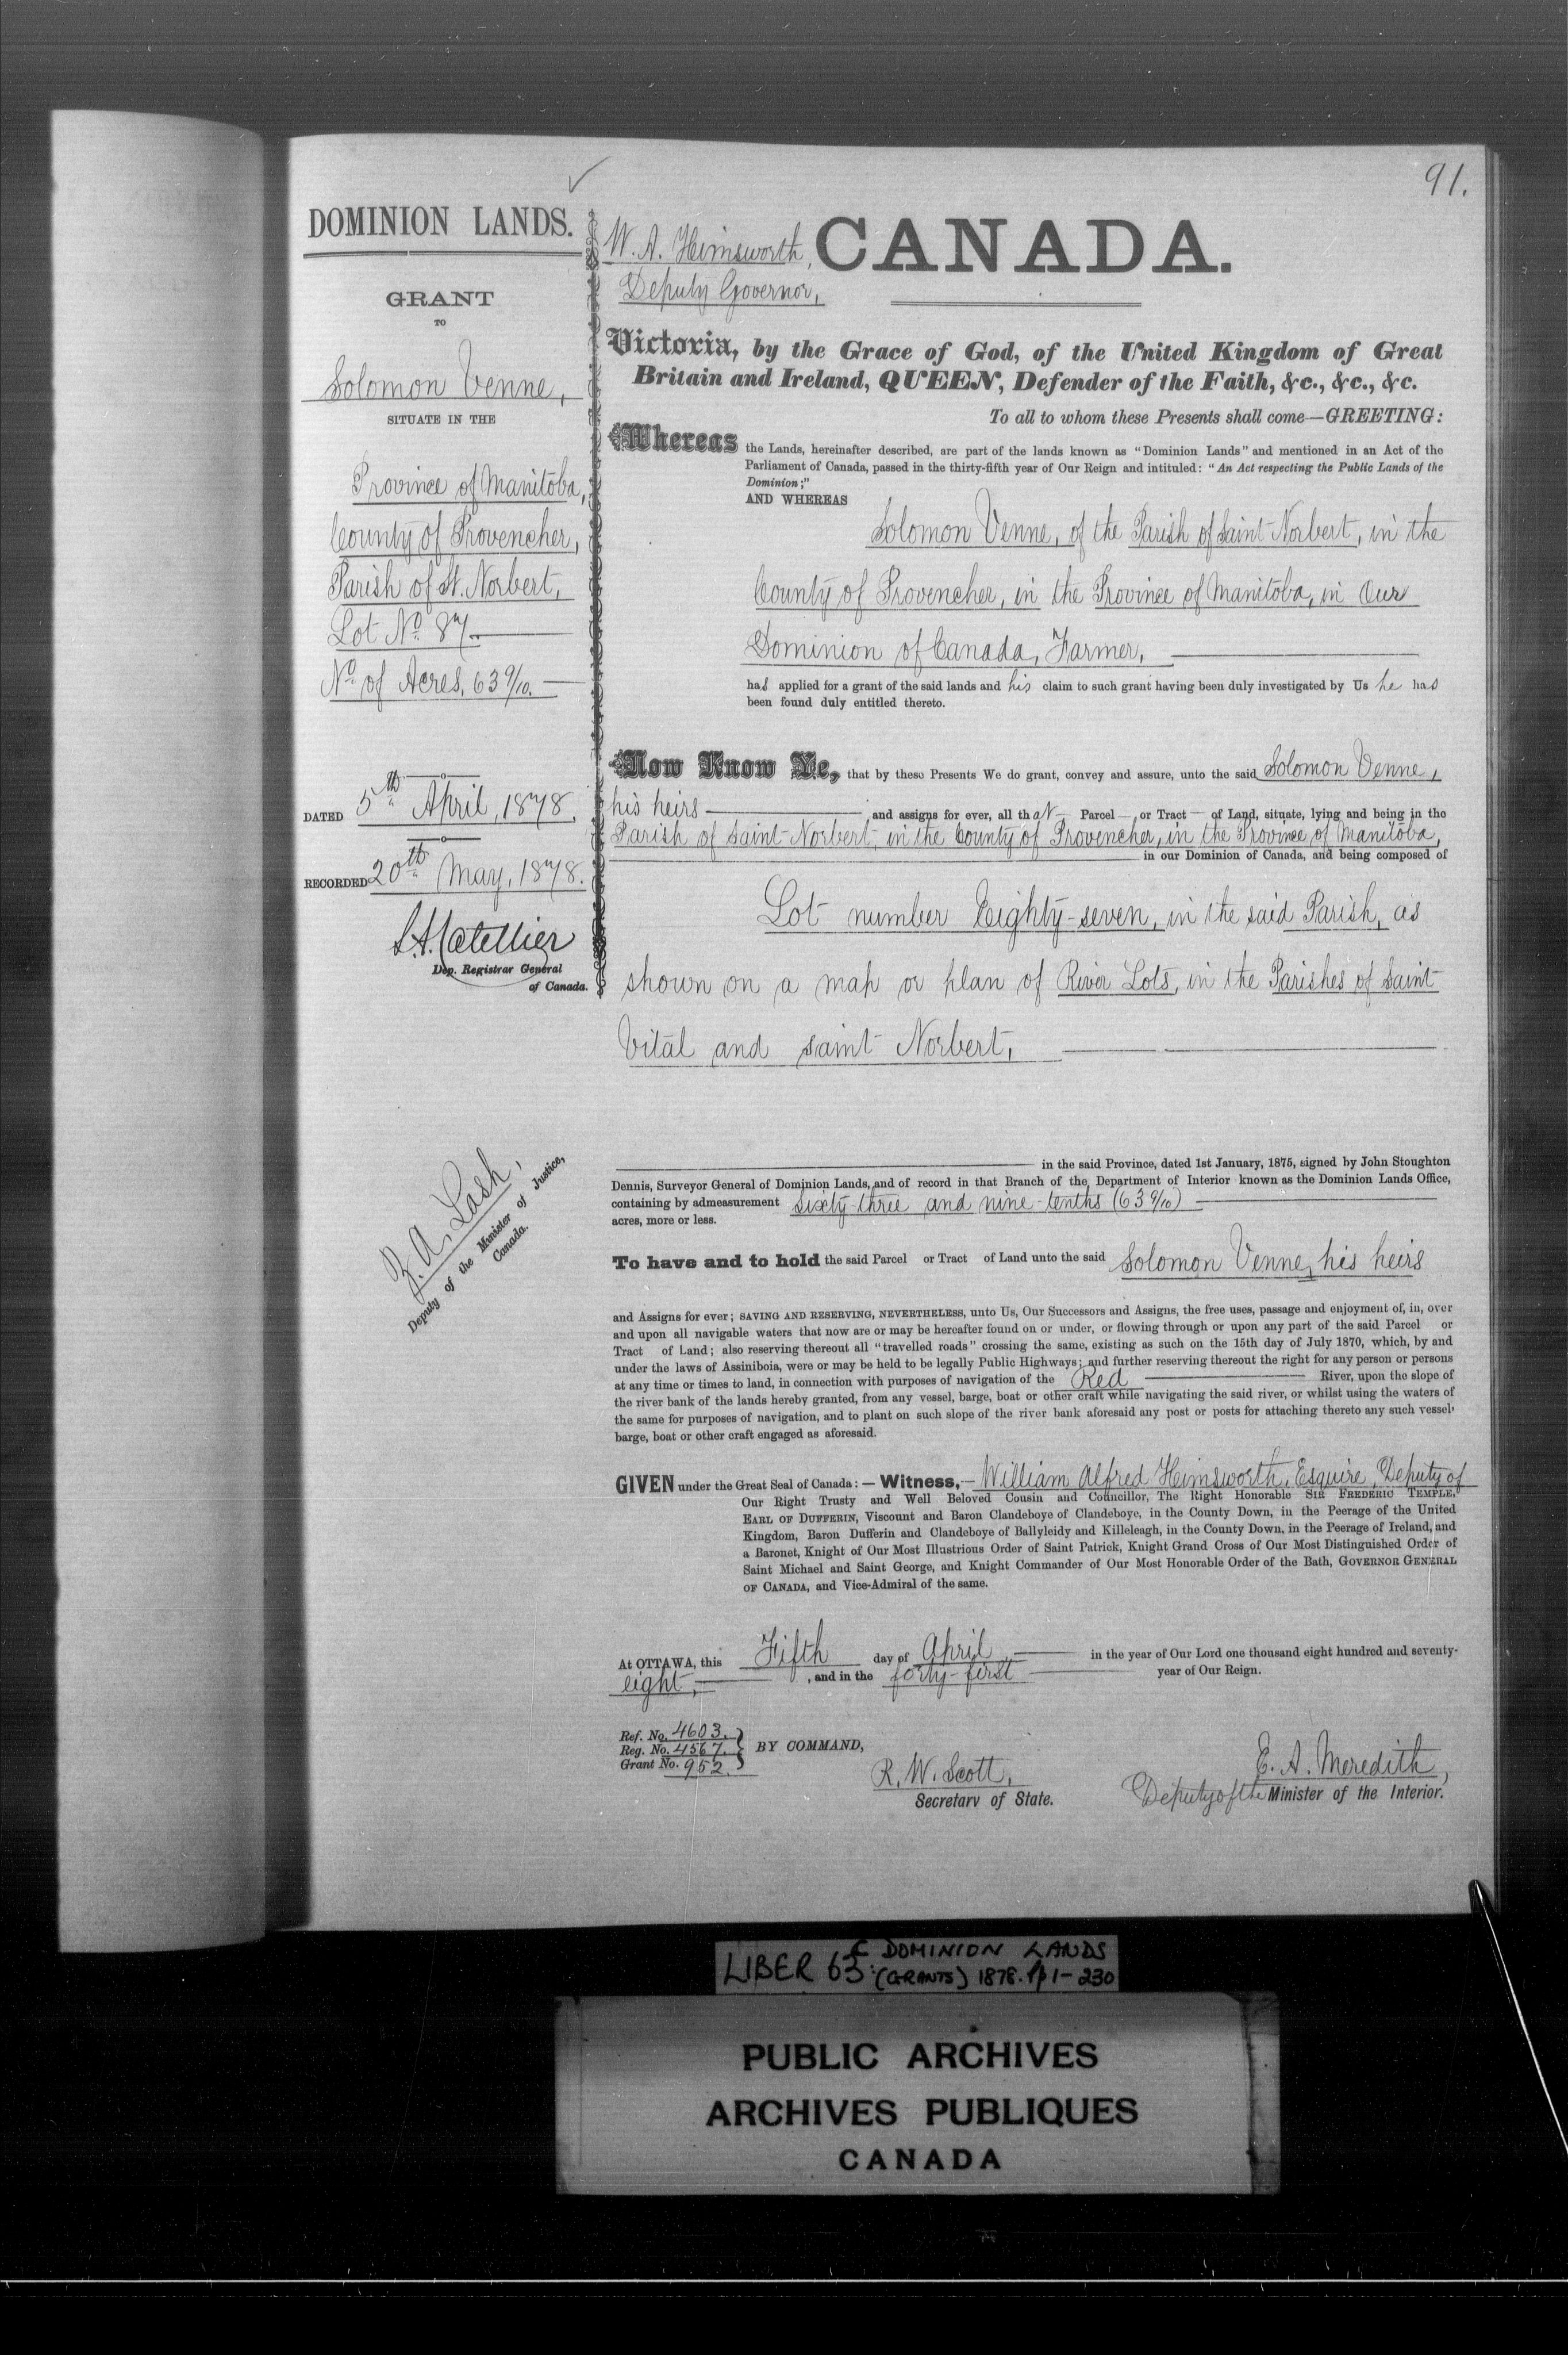 91.
DOMINION LANDS.
GRANT
TO
Solomon Venne,
SITUATE IN THE
Province of Manitoba,
County of Provencher,
Parish of St. Norbert,
Lot No. 87.
No. of Acres, 63 9/10.
DATED 5th April, 1878.
RECORDED 20th May, 1878.
Dep. Registrar General
of Canada.
Z. A. Lash,
Deputy of the Minister of Justice,
Canada.
W. A. Himsworth,
Deputy Governor,
CANADA.
Victoria, by the Grace of God, of the United Kingdom of Great
Britain and Ireland, QUEEN, Defender of the Faith, &c., &c., &c.
To all to whom these Presents shall come—GREETING:
Whereas the Lands, hereinafter described, are part of the lands known as "Dominion Lands" and mentioned in an Act of the
Parliament of Canada, passed in the thirty-fifth year of Our Reign and intituled: "An Act respecting the Public Lands of the
Dominion;"
AND WHEREAS
Solomon Venne, of the Parish of Saint Norbert, in the
County of Provencher, in the Province of Manitoba, in Our
Dominion of Canada, Farmer,
has applied for a grant of the said lands and his claim to such grant having been duly investigated by Us he has
been found duly entitled thereto.
Now Know Ye, that by these Presents We do grant, convey and assure, unto the said Solomon Venne,
his heirs and assigns for ever, all that Parcel, or Tract of Land, situate, lying and being in the
Parish of Saint Norbert, in the County of Provencher, in the Province of Manitoba,
in our Dominion of Canada, and being composed of
Lot number Eighty-seven, in the said Parish, as
shown on a map or plan of River Lots, in the Parishes of Saint
Vital and Saint Norbert,
in the said Province, dated 1st January, 1875, signed by John Stoughton
Dennis, Surveyor General of Dominion Lands, and of record in that Branch of the Department of Interior known as the Dominion Lands Office,
containing by admeasurement Sixty-three and nine-tenths (63 9/10)
acres, more or less.
To have and to hold the said Parcel or Tract of Land unto the said Solomon Venne, his heirs
and Assigns for ever; SAVING AND RESERVING, NEVERTHELESS, unto Us, Our Successors and Assigns, the free uses, passage and enjoyment of, in, over
and upon all navigable waters that now are or may be hereafter found on or under, or flowing through or upon any part of the said Parcel or
Tract of Land; also reserving thereout all "travelled roads" crossing the same, existing as such on the 15th day of July 1870, which, by and
under the laws of Assiniboia, were or may be held to be legally Public Highways; and further reserving thereout the right for any person or persons
at any time or times to land, in connection with purposes of navigation of the Red River, upon the slope of
the river bank of the lands hereby granted, from any vessel, barge, boat or other craft while navigating the said river, or whilst using the waters of
the same for purposes of navigation, and to plant on such slope of the river bank aforesaid any post or posts for attaching thereto any such vessel,
barge, boat or other craft engaged as aforesaid.
GIVEN under the Great Seal of Canada:—Witness,—William Alfred Himsworth, Esquire, Deputy of
Our Right Trusty and Well Beloved Cousin and Councillor, The Right Honorable SIR FREDERIC TEMPLE,
EARL OF DUFFERIN, Viscount and Baron Clandeboye of Clandeboye, in the County Down, in the Peerage of the United
Kingdom, Baron Dufferin and Clandeboye of Ballyleidy and Killeleagh, in the County Down, in the Peerage of Ireland, and
a Baronet, Knight of Our Most Illustrious Order of Saint Patrick, Knight Grand Cross of Our Most Distinguished Order of
Saint Michael and Saint George, and Knight Commander of Our Most Honorable Order of the Bath, GOVERNOR GENERAL
OF CANADA, and Vice-Admiral of the same.
At OTTAWA, this Fifth day of April in the year of Our Lord one thousand eight hundred and seventy-
eight, , and in the forty-first year of Our Reign.
Ref. No. 4603.
Reg. No. 4567.
Grant No. 952.
BY COMMAND,
R. W. Scott,
Secretary of State.
E. A. Meredith,
Deputy of the Minister of the Interior.
LIBER 63: C DOMINION LANDS
(GRANTS) 1878. pp 1-230
PUBLIC ARCHIVES
ARCHIVES PUBLIQUES
CANADA